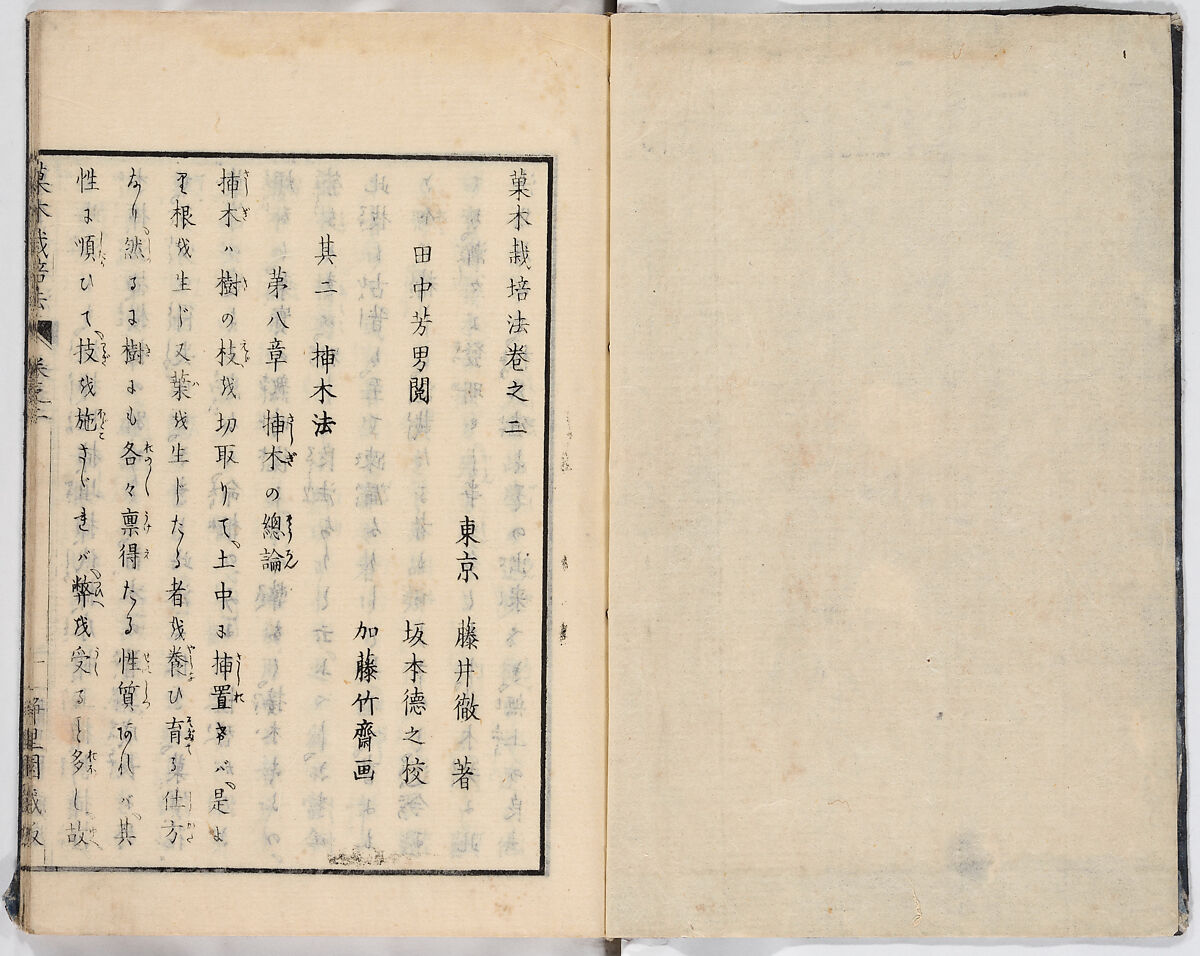 菓木栽培法卷之二
東京 藤井徹 著
田中芳男閲 坂本德之校
加藤竹齋画
其二 揷木法
第八章 揷木の總論
揷木ハ樹の枝を切取りて土中に揷置キバ是よ
り根を生じ又葉を生じたる者を養ひ育る仕方
なり然るに樹にも各々禀得たる性質あれバ其
性に順ひて技を施さゞれバ弊を受る多し故
菓木栽培法 卷之二 一 静里園藏板